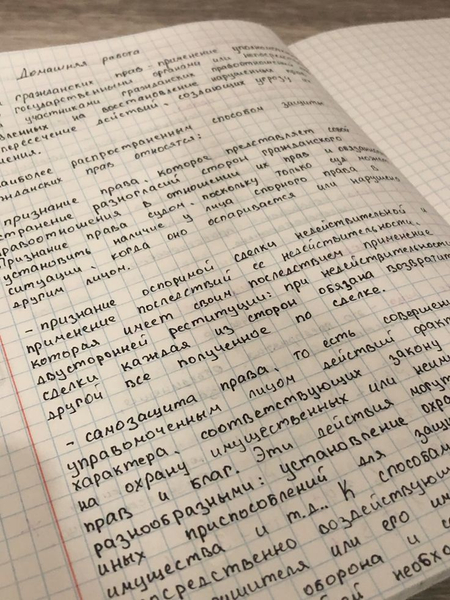 Домашняя работа
гражданских прав - применение уполном
государственными органами или непосредс
участниками гражданских правоотношений
вленных на восстановление нарушенных прав
пересечение действий, создающих угрозу их
шения.
аиболее распространенным способом защиты
жданских прав относятся:
признание права, которое представляет собой
странение разногласий сторон гражданского
равоотношения в отношении их прав и обязанно
Признание права судом, поскольку только суд может
установить наличие у лица спорного права в
ситуации, когда оно оспаривается или нарушено
другим лицом.
- признание оспоримой сделки недействительной и
применение последствий ее недействительности,
которая имеет своим последствием применение
двусторонней реституции: при недействительности
сделки каждая из сторон обязана возвратит
другой все полученное по сделке.
- самозащита права, то есть совершени
управомоченным лицом действий факти
характера, соответствующих закону
на охрану имущественных или неиму
прав и благ. Эти действия могут
разнообразными: установление охра
иных приспособлений для защи
имущества и т.д.. К способам
посредственно воздействующ
ушителя или его им
оборона и
необхо